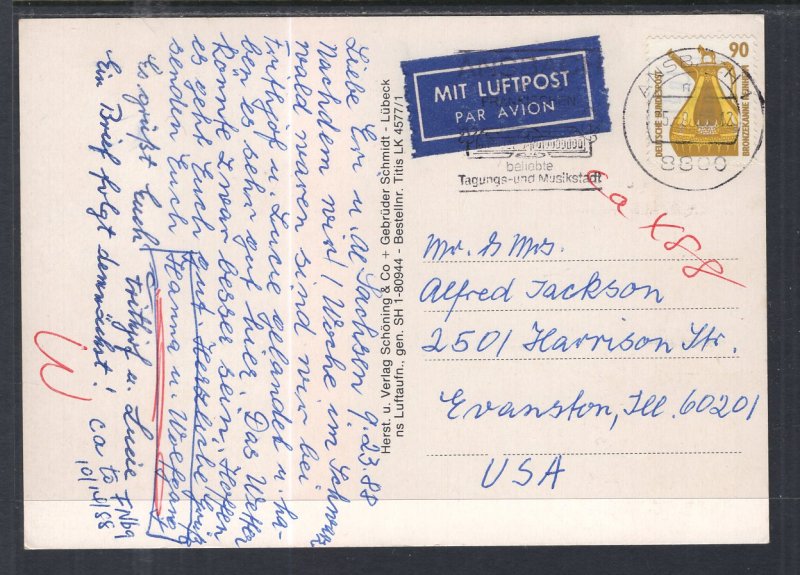 Liebe Evi u. Al
Sachsen 9.23.88
Nachdem wir 1 Woche im Schwarz
wald waren sind wir bei
Frithjof u. Lucie gelandet u. ha-
ben es sehr gut hier. Das Wetter
könnte zwar besser sein. Hoffen
es geht Euch gut. Herzliche Grüße
senden Euch Hanna u. Wolfgang
Es grüßt Euch Frithjof u. Lucie
Ein Brief folgt demnächst!
ca to FNbg
10/14/88
Herst. u. Verlag Schöning & Co + Gebrüder Schmidt - Lübeck
ns Luftaufn., gen. SH 1-80944 - Bestellnr. Titis LK 4577/1
MIT LUFTPOST
PAR AVION
ANSBACH
beliebte
Tagungs- und Musikstadt
ANSBACH
8800
90
DEUTSCHE BUNDESPOST
BRONZEKANNE REINHEIM
ca X88
Mr. & Mrs.
Alfred Jackson
2501 Harrison Str.
Evanston, Ill. 60201
USA